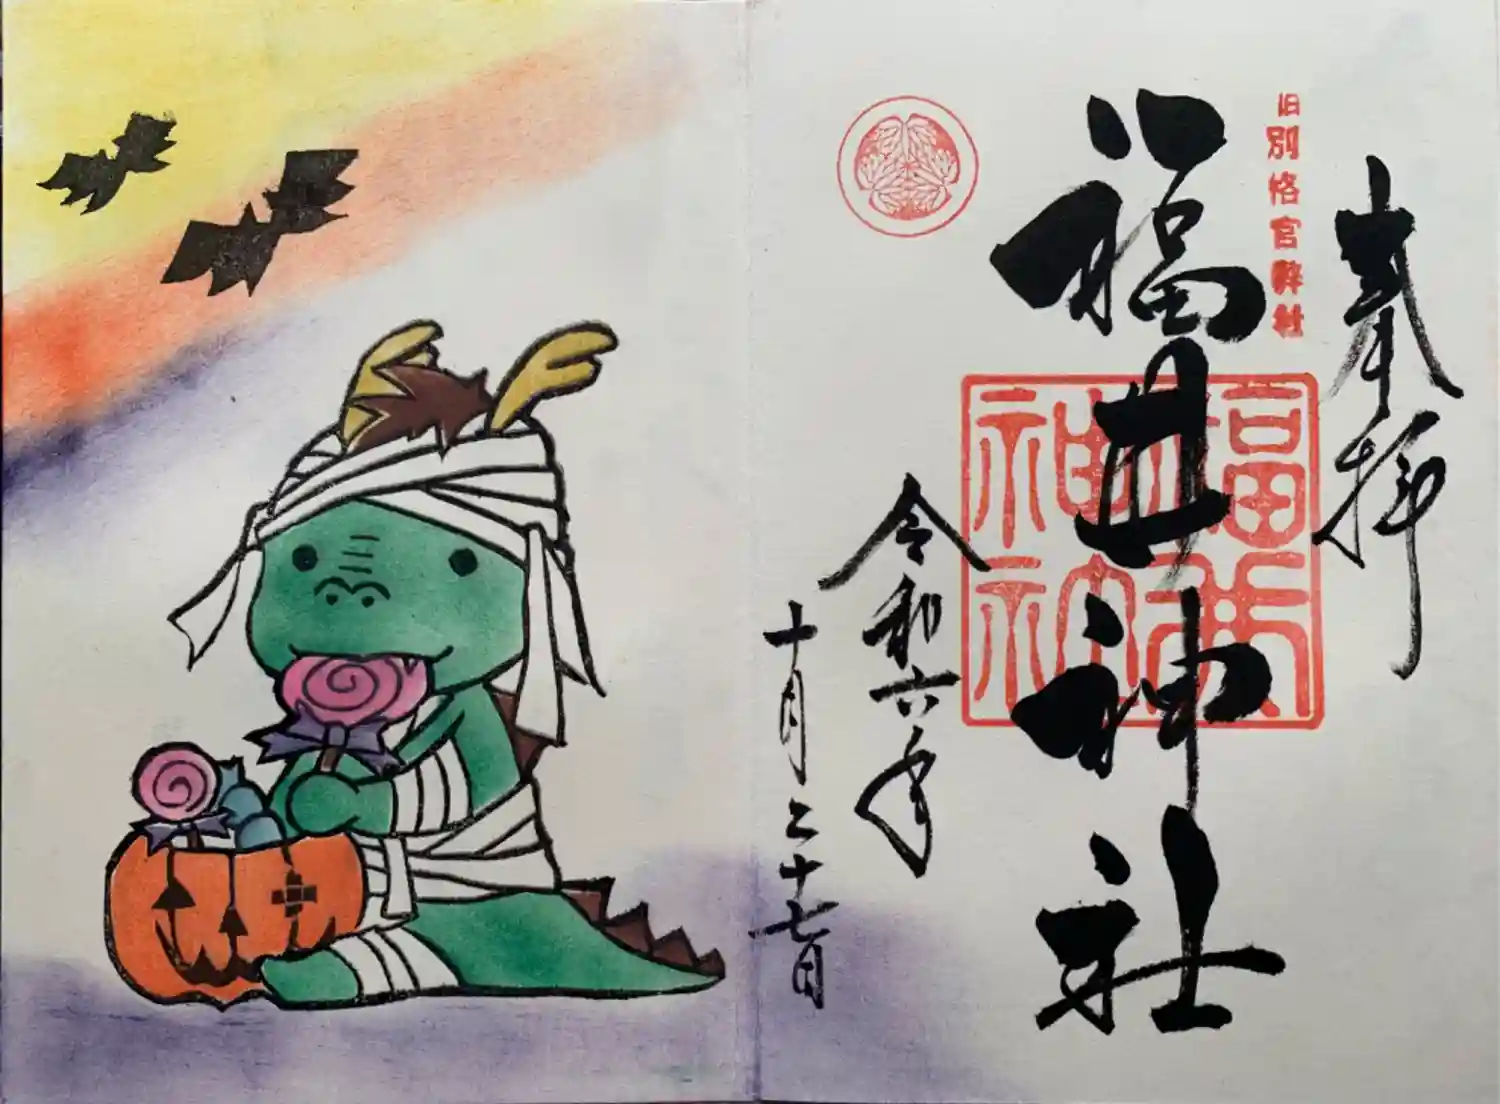 奉拝
旧別格官幣社
福井神社
福井
神社
令和六年
十月二十七日